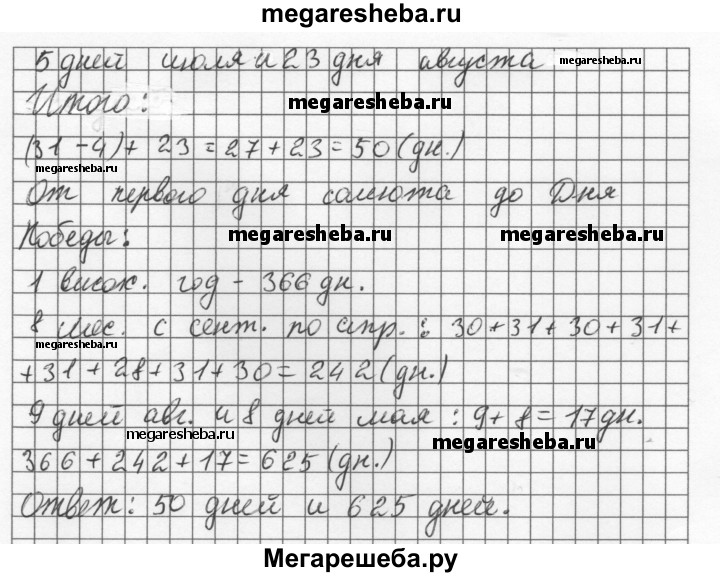 megaresheba.ru
5 дней июля и 23 дня августа megaresheba.ru
Итого: megaresheba.ru
(31-4)+ 23 = 27 + 23 = 50 (дн.)
megaresheba.ru
От первого дня салюта до Дня
Победы: megaresheba.ru megaresheba.ru
1 висок. год - 366 дн.
8 мес. с сент. по апр.: 30+31+30+31+
megaresheba.ru
+31+28+31+30=242(дн.)
9 дней авг. и 8 дней мая: 9+8=17дн.
megaresheba.ru megaresheba.ru
366+242+17=625(дн.)
Ответ: 50 дней и 625 дней.
Мегарешеба.ру